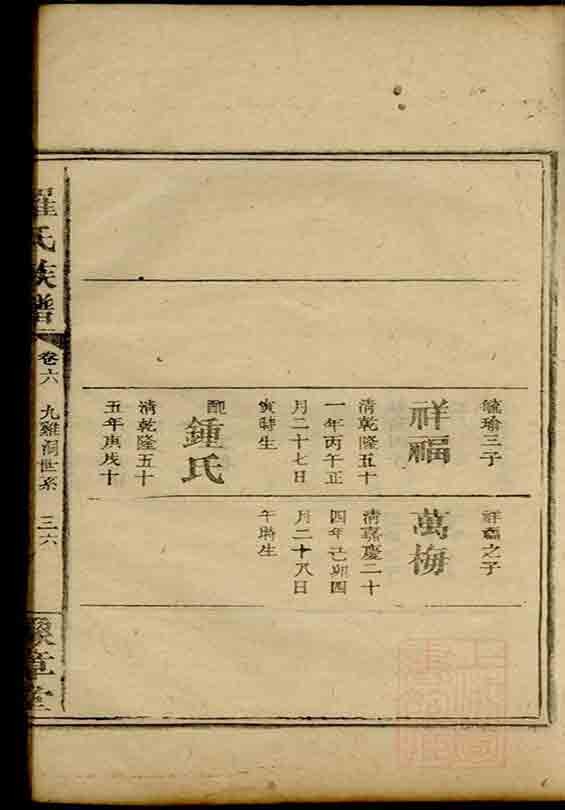 毓瑜三子
祥福
清乾隆五十
一年丙午正
月二十七日
寅時生
配
鍾氏
清乾隆五十
五年庚戌十
祥福之子
萬梅
清嘉慶二十
四年己卯四
月二十八日
午時生
羅氏族譜
卷六
九雞洞世系
三六
豫章堂